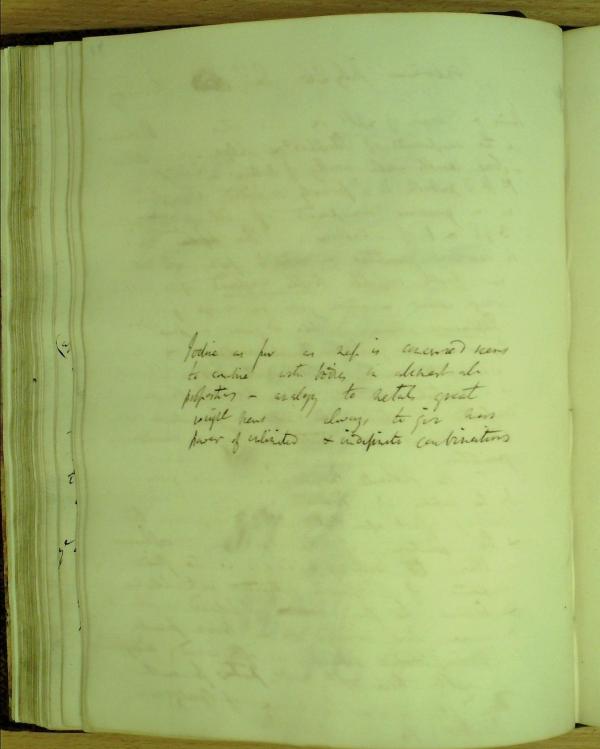 Iodine as far as as is concerned seems
to combine with bodies in almost all
proportions – analogy to metals great
weight seems always to give
power of unlimited & indefinite combinations